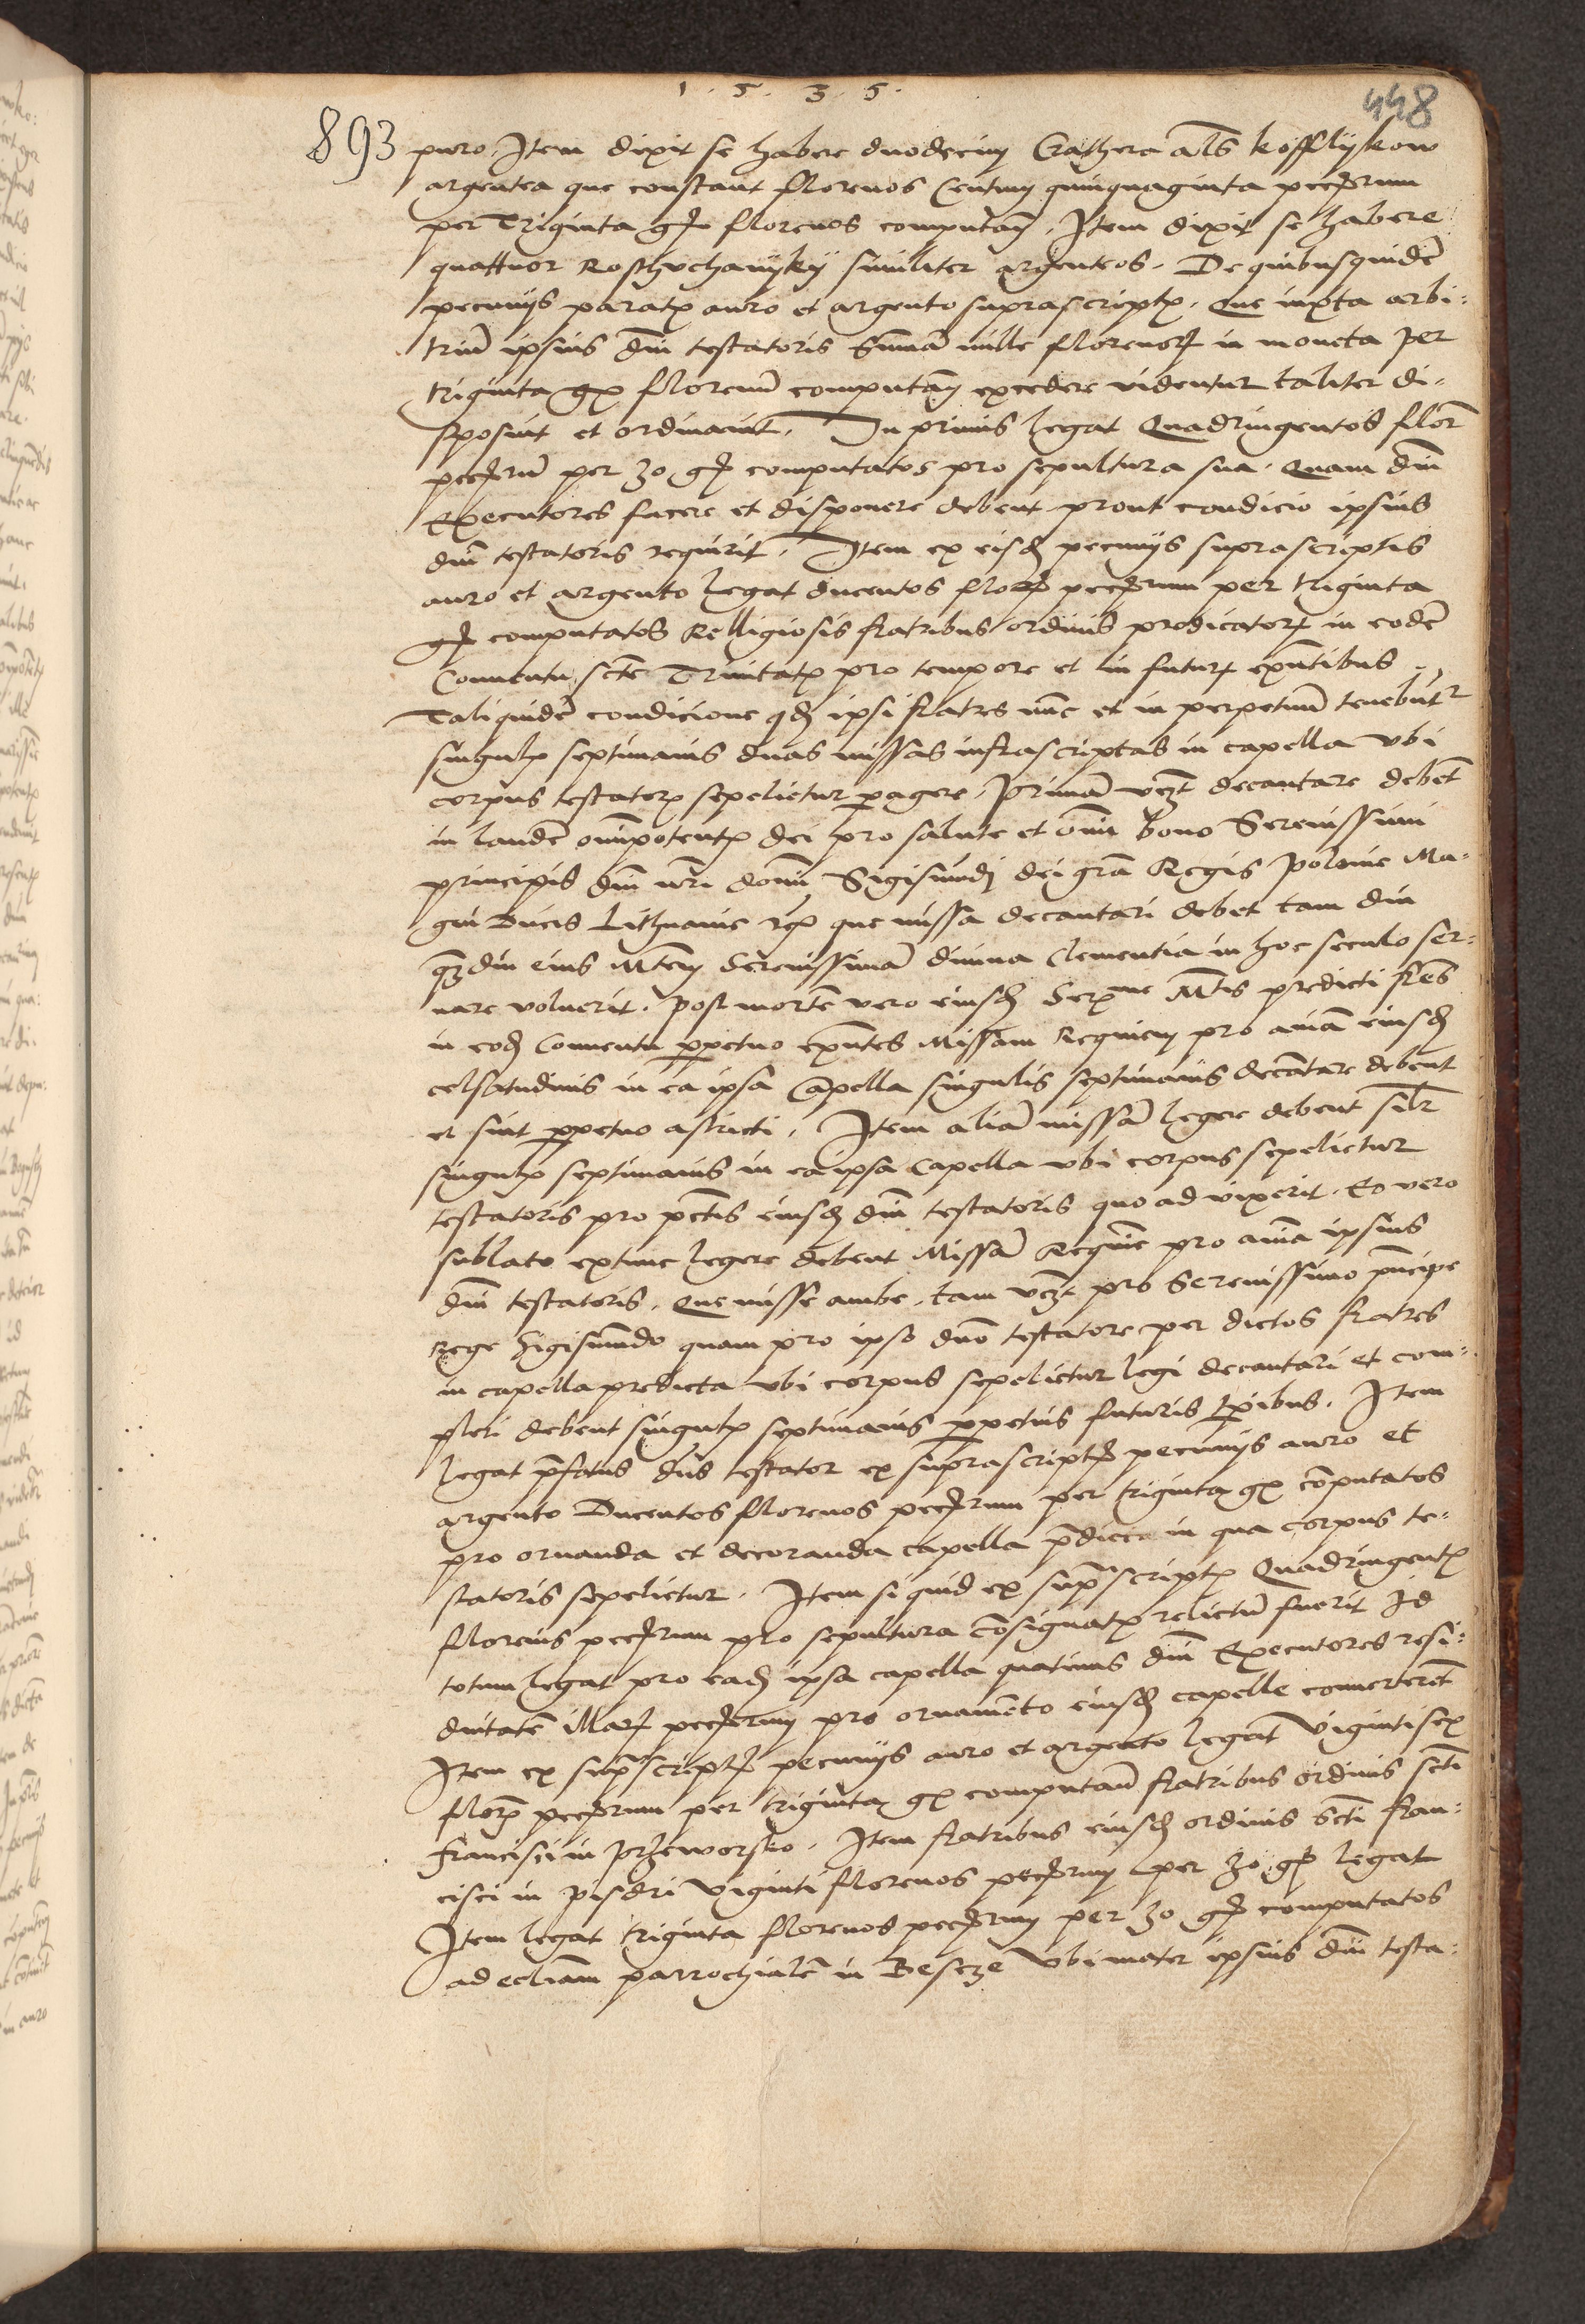 1·5·3·5·
448
893
puro. Item dixit se habere duodecim Crathera als kofflykow
argentea que constant florenos Centum quinquaginta pecuniarum
per Triginta gr florenos computan̄. Item dixit se habere
quattuor Rosthvchanyky similiter argenteos. De quibusquidē
pecunijs paratis auro et argento suprascriptis. Que iuxta arbi-
triū ipsius dnī testatoris Summā mille florenor in moneta per
triginta gr florenū computan̄ excedere videntur taliter di-
sposuit et ordinavit. In primis legat Quadringentos flor̄
pecuniarū per 30 gr computatos pro sepultura sua. Quam dnī
Executores facere et disponere debent prout condicio ipsius
dnī testatoris requirit. Item ex eisd pecunijs suprascriptis
auro et argento legat ducentos flor pecuniarum per triginta
gr computatos Relligiosis fratribus ordinis predicator in eodē
Conventu scte Trinitatis pro tempore et in futur exn̄tibus
Taliquidē condicione qd ipsi fratres nūc et in perpetuū tenebūtr
singulis septimanis duas missas infrascriptas in capella vbi
corpus testatoris sepelietur peragere. Primā vczt decantare debēt
in laudē omīpotentis dei pro salute et omī bono Serenissimi
principis dnī nrī domī Sigismūdi dei grā Regis Polonie Ma-
gni Ducis Lithuanie rc que missa decantari debet tam diu
qzdiu eius Mtem Serenissimā divina Clementia in hoc seculo ser-
uare voluerit. Post mortē vero eiusd Serme Mtis predicti frēs
in eod Conventu perpetuo exn̄tes Missam Requiem pro aīa eiusd
celsitudinis in ea ipsa Capella singulis septimanis decātare debent
et sint perpetuo astricti. Item aliā missā legere debent silr̄
singulis septimanis in ea ipsa Capella vbi corpus sepelietur
testatoris pro pctīs eiusd dnī testatoris quo ad vixerit. Eo vero
sublato extunc legere debent Missā Requie pro aīa ipsius
dnī testatoris. Que misse ambe. tam vczt pro Serenissimo pn̄cipe
rege Sigismūdo quam pro ipso dnō testatore per dictos fratres
in capella predicta vbi corpus sepelietur legi decantari et com-
pleri debent singulis septimanis perpetuis futuris tp̄ibus. Item
legat pfatus dns testator ex suprascriptis pecunijs auro et
argento Ducentos florenos pecuniarum per triginta gr cōputatos
pro ornanda et decoranda capella pdicta in qua corpus te-
statoris sepelietur. Item siquid ex supscriptis Quadringentis
florenis pecuniarum pro sepultura cōsignatis relictū fuerit Id
totum legat pro ead ipsa capella quatinus dnī Executores resi-
duitatē illar pecuniarum pro ornamēto eiusd capelle converterēt
Item ex supscriptis pecunijs auro et argento legat Vigintisex
flor pecuniarum per triginta gr computan̄ fratribus ordinis scti
Francisci in Przeworsko. Item fratribus eiusd ordinis Scti Fran-
cisci in Pisdri Viginti florenos pecuniarum per 30 gr legat
Item legat triginta florenos pecuniarum per 30 gr computatos
ad ecliam parrochialē in Besze Vbi mater ipsius dnī testa-